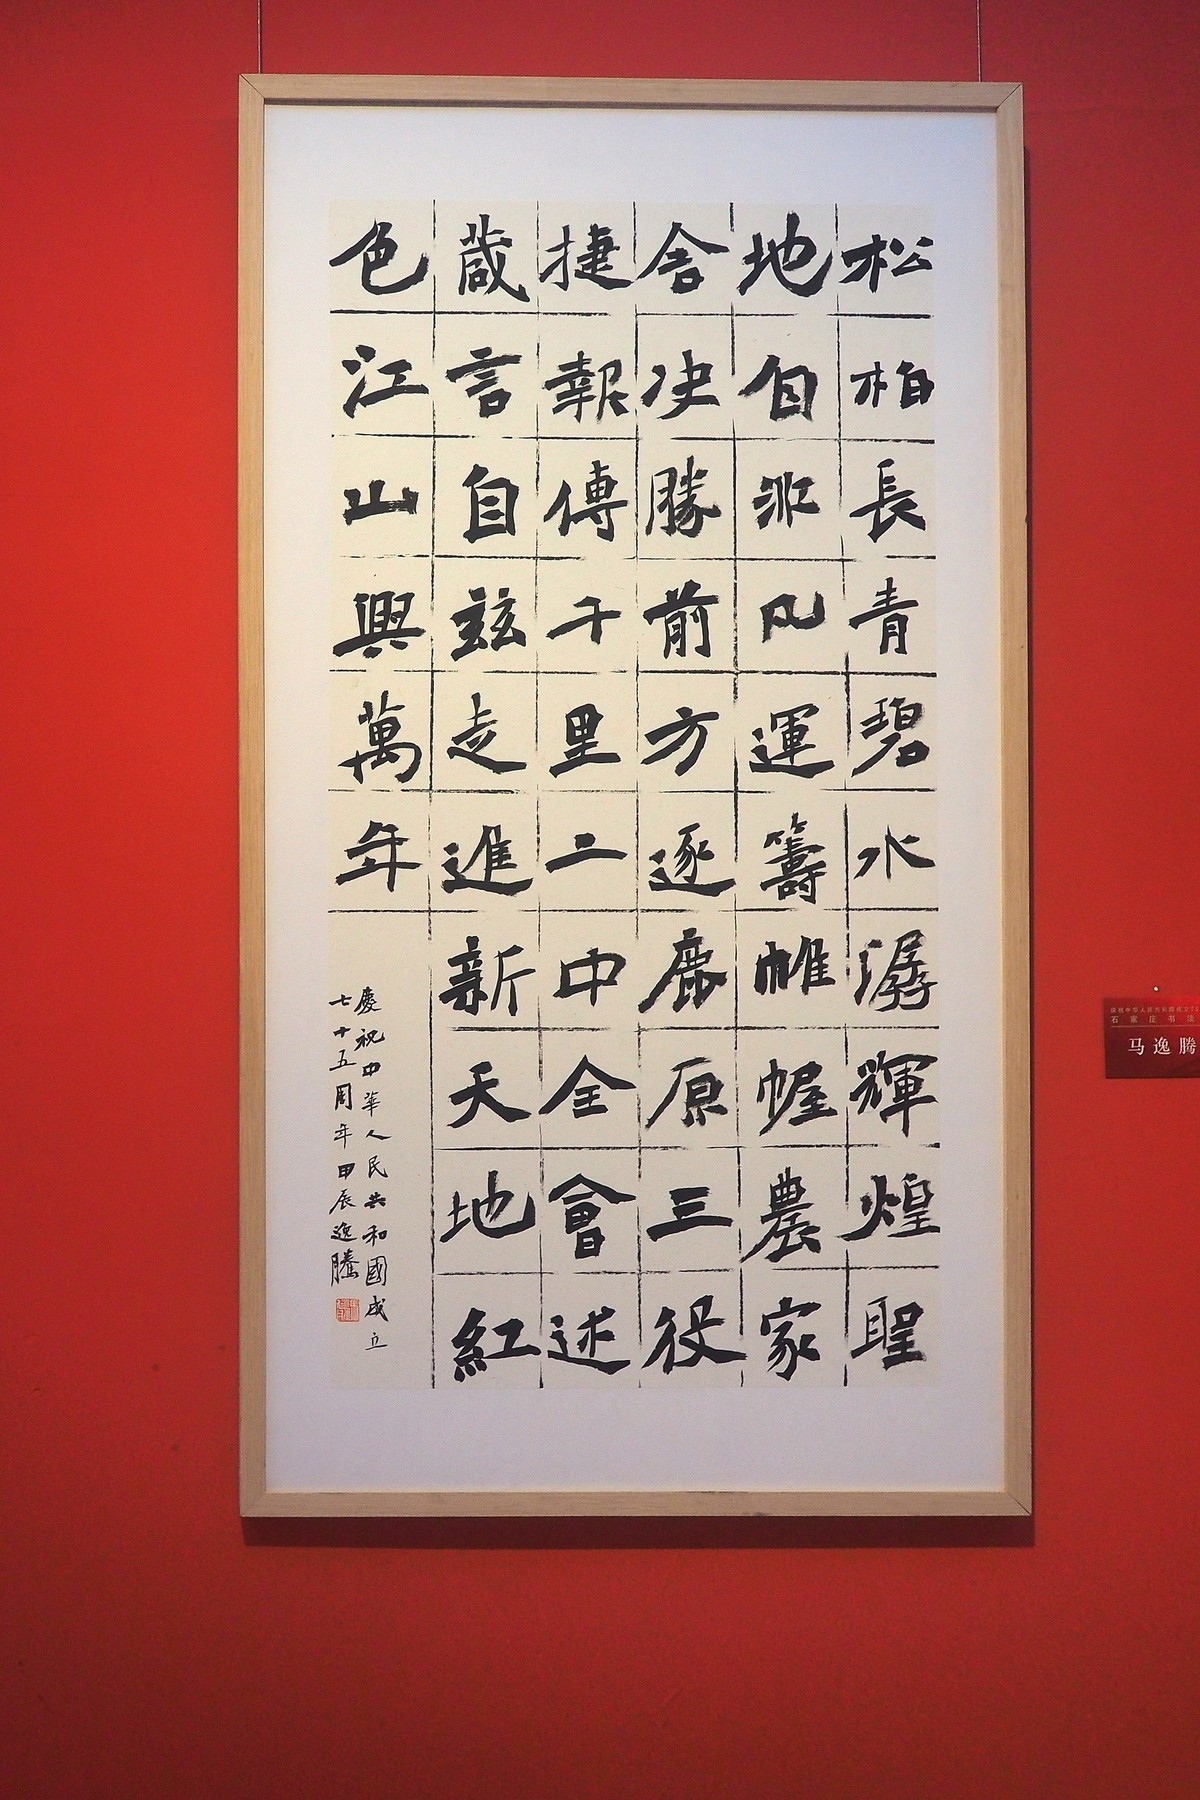 松柏長青碧水潺輝煌聖
地自非凡運籌帷幄農家
舍决勝前方逐鹿原三役
捷報傳千里二中全會述
蒇言自兹走進新天地紅
色江山興萬年
慶祝中華人民共和國成立
七十五周年甲辰逸騰
石家庄书法
马逸腾